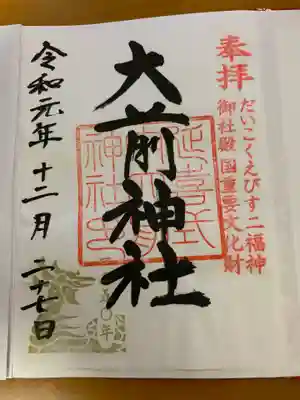 奉拝
だいこくえびす二福神
御社殿 国重要文化財
大前神社
令和元年 十二月 二十七日